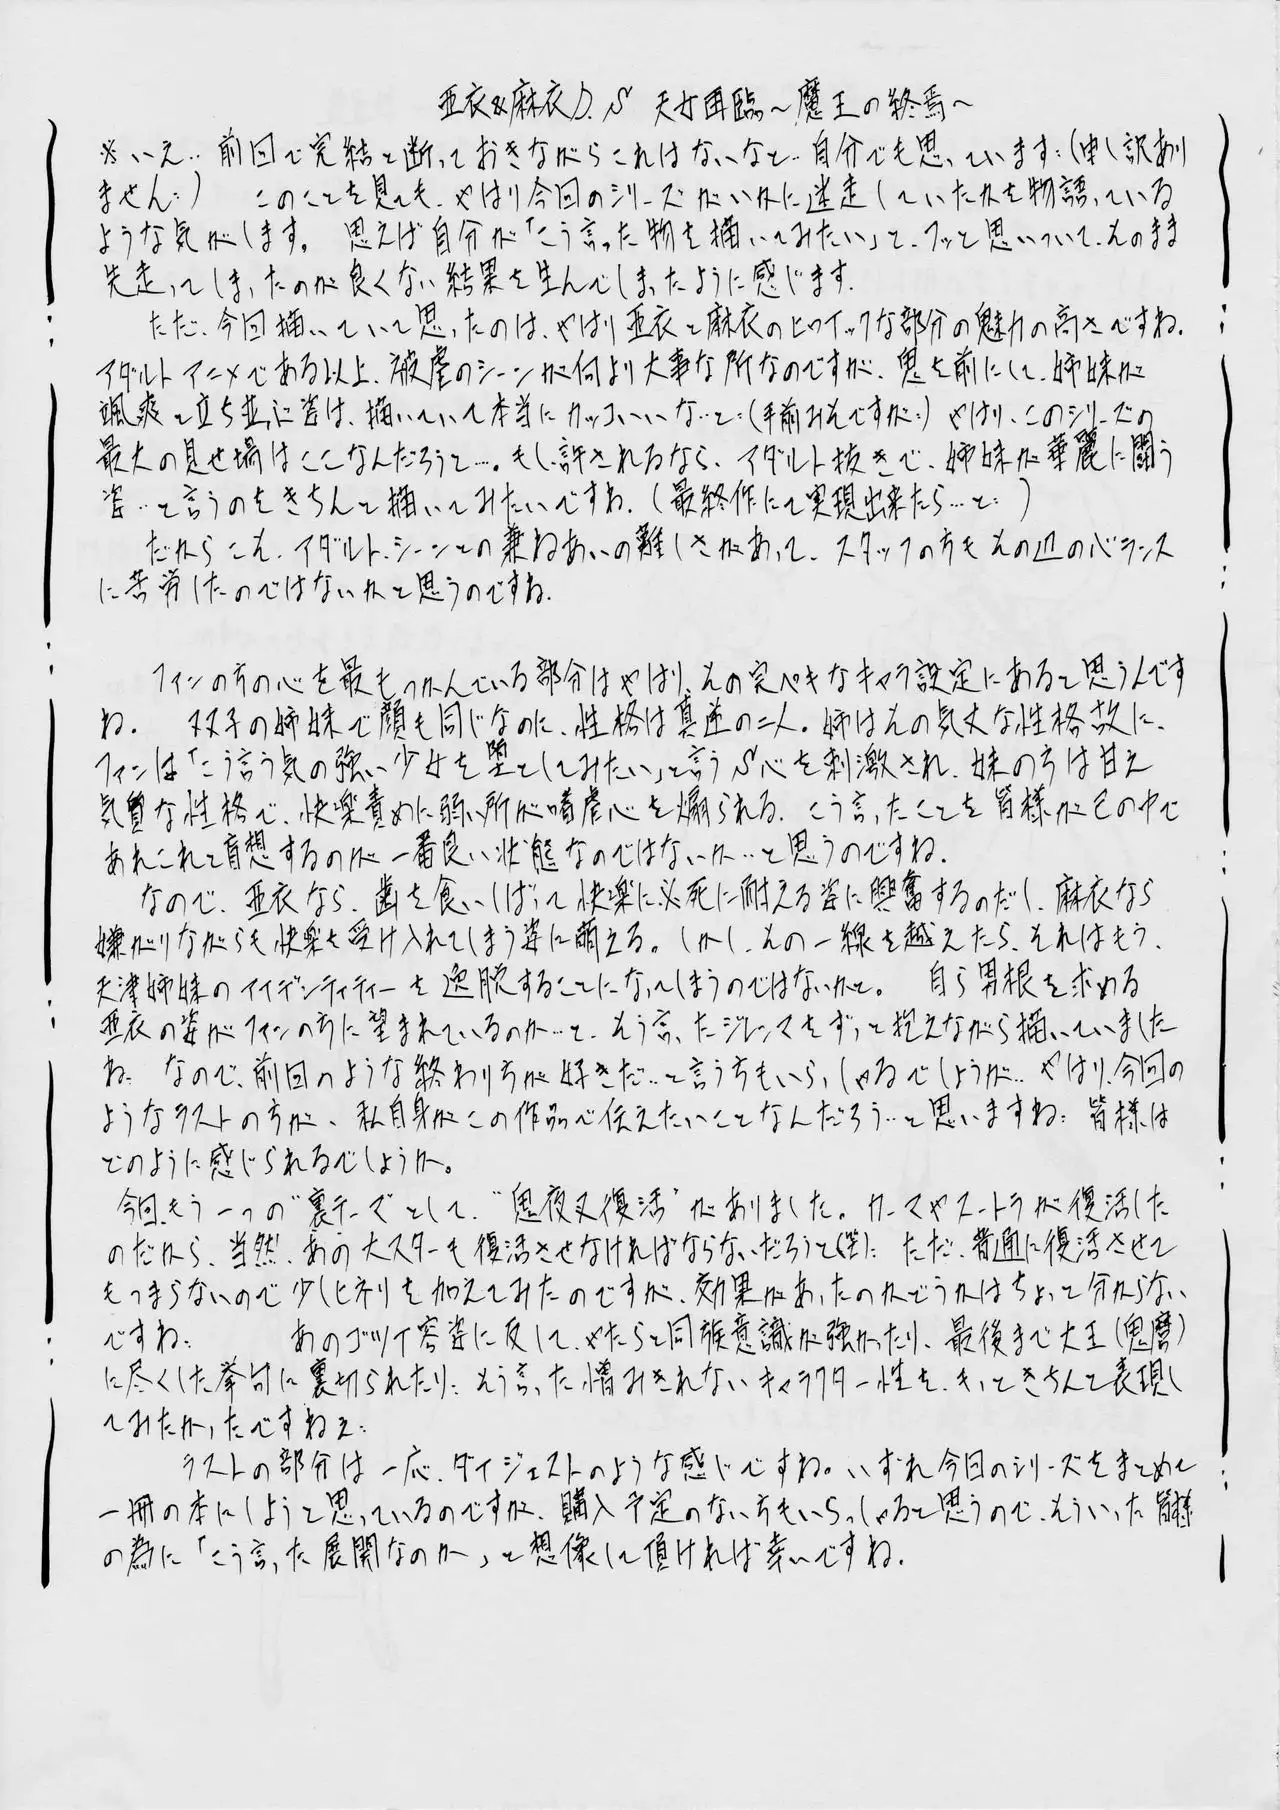 亜衣&麻衣D.S 天女再臨～魔王の終焉～
※いえ‥前回で完結と断っておきながらこれはないなと‥自分でも思っています:(申し訳あり
ません:) このことを見ても、やはり今回のシリーズがいかに迷走していたかを物語っている
ような気がします。 思えば自分が「こう言った物を描いてみたい」と、フッと思いついて、そのまま
先走ってしまったのが良くない結果を生んでしまったように感じます.
ただ、今回描いていて思ったのは、やはり亜衣と麻衣のヒロイックな部分の魅力の高さですね.
アダルトアニメである以上、被虐のシーンが何より大事な所なのですが、鬼を前にして、姉妹が
颯爽と立ち並ぶ姿は、描いていて本当にカッコいいな‥と:(手前みそですが:) やはり、このシリーズの
最大の見せ場はここなんだろうと‥‥。もし許されるなら、アダルト抜きで、姉妹が華麗に闘う
姿‥と言うのをきちんと描いてみたいですね.(最終作にて実現出来たら…と:)
だからこそ、アダルト.シーンとの兼ねあいの難しさがあって、スタッフの方もその辺のバランス
に苦労したのではないかと思うのですね.
ファンの方の心を最もつかんでいる部分はやはり、その完ペキなキャラ設定にあると思うんです
ね. 双子の姉妹で顔も同じなのに、性格は真逆の二人。姉はその気丈な性格故に、
ファンは「こう言う気の強い少女を堕としてみたい」と言うS心を刺激され、妹の方は甘え
気質な性格で、快楽責めに弱い所が嗜虐心を煽られる. こう言ったことを皆様が己の中で
あれこれと盲想するのが一番良い状態なのではないか‥と思うのですね.
なので、亜衣なら、歯を食いしばって快楽に必死に耐える姿に興奮するのだし、麻衣なら
嫌がりながらも快楽を受け入れてしまう姿に萌える。しかし、その一線を越えたら、それはもう、
天津姉妹のアイデンティティーを逸脱することになってしまうのではないかと。 自ら男根を求める
亜衣の姿がファンの方に望まれているのか…と、そう言ったジレンマをずっと抱えながら描いていました
ね: なので、前回のような終わり方が好きだ‥と言う方もいらっしゃるでしょうが‥ やはり、今回の
ようなラストの方が、私自身がこの作品で伝えたいことなんだろう‥と思いますね: 皆様は
どのように感じられるでしょうか。
今回、もう一つの"裏テーマ"として、"鬼夜叉復活"がありました。カーマやスートラが復活した
のだから、当然、あの大スターも復活させなければならないだろうと(笑): ただ、普通に復活させて
もつまらないので少しヒネリを加えてみたのですが、効果があったのかどうかはちょっと分からない
ですね: あのゴツイ容姿に反して、やたらと同族意識が強かったり、最後まで大王(鬼麿)
に尽くした挙句に裏切られたり: そう言った憎みきれないキャラクター性を、もっときちんと表現し
てみたかったですねぇ:
ラストの部分は一応、ダイジェストのような感じですね。いずれ今回のシリーズをまとめて
一冊の本にしようと思っているのですが、購入予定のない方もいらっしゃると思うので、そういった皆様
の為に「こう言った展開なのか」と想像して頂ければ幸いですね.